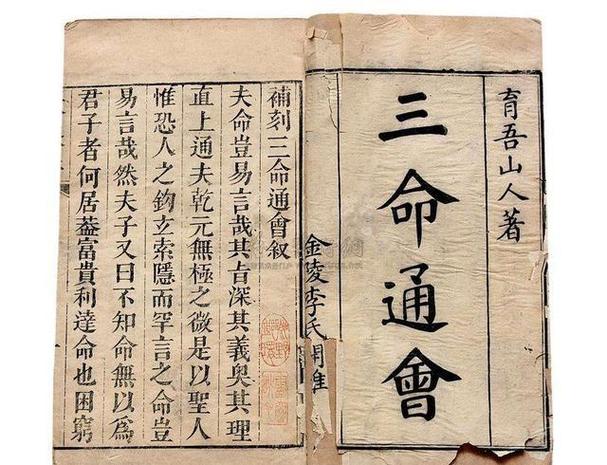 育吾山人著
三命通會
金陵李氏
補刻三命通會叙
夫命豈易言哉其旨深其義奥其理
直上通夫乾元無極之微是以聖人
惟恐人之鉤立索隱而罕言之命豈
易言哉然夫子又曰不知命無以爲
君子者何居葢富貴利達命也困窮